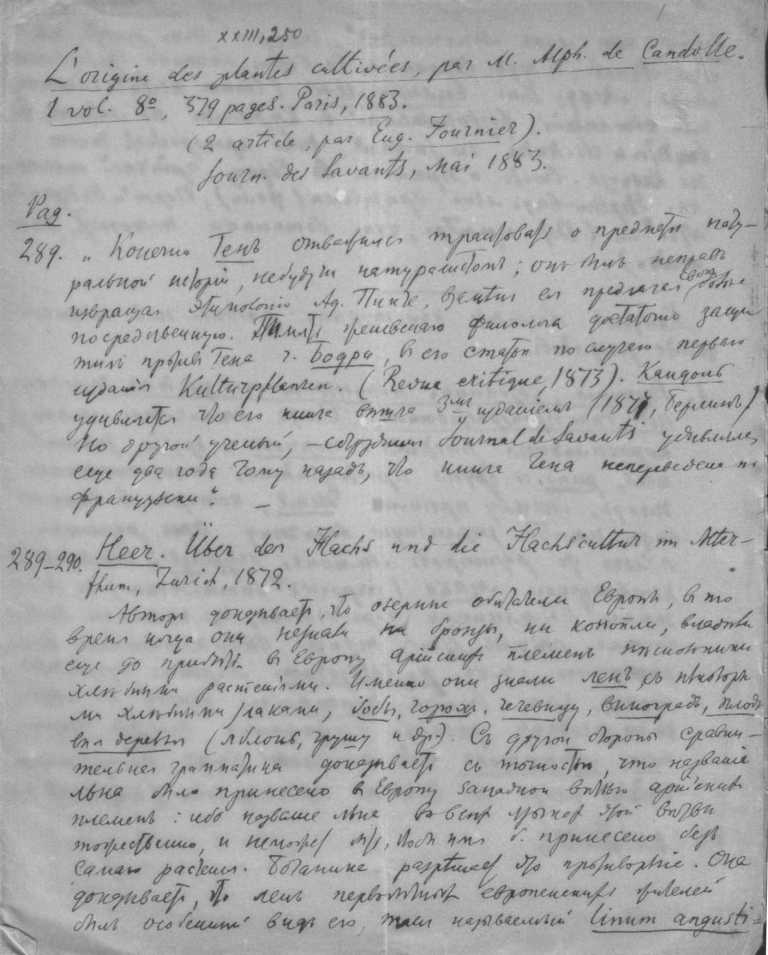 XXIII, 250
L'origine des plantes cultivées, par M. Alph. de Candolle.
1 vol. 8º, 379 pages. Paris, 1883.
(2 article, par Eug. Fournier).
Journ. des Savants, Mai 1883.
Pag.
289. „ Конечно Генъ отважился трактовать о предметѣ нату-
ральной исторіи, небудучи натуралистомъ; онъ былъ неправъ
извращая этимологію Ад. Пикте,
посредственную. женевскаго филолога достаточно защи
тилъ противъ Гена г. Бодри, въ его статьѣ по случаю перваго
изданія Kulturpflanzen. (Revue critique, 1873). Кандоль
удивляется что его книга 3мъ изданіемъ (1877, Берлинъ)
Но другой ученый, – сотрудникъ Journal de Savants удивлялся
еще два года тому назадъ, что книга Гена непереведена по
французски". –
289–290. Heer. Über den Flachs und die Flachscultur im Alter-
thum, Zurich, 1872.
Авторъ доказываетъ, что озерные обитатели Европы, въ то
время когда они незнали ни бронзы, ни конопли, владѣли
еще до прибытія въ Европу арійскихъ племенъ нѣсколькими
хлѣбными растеніями. Именно они знали ленъ, съ нѣкоторы
ми хлѣбными злаками, бобы, горохъ, чечевицу, виноградъ, плодо
выя деревья (яблонь, грушу и др). Съ другой стороны сравни-
тельная грамматика доказываетъ съ точностью, что названіе
льна было принесено въ Европу западной вѣтвью арійскихъ
племенъ: ибо названіе льна во всѣхъ языкахъ этой вѣтви
тожественно, и неможетъ б. принесено безъ
самаго растенія. Ботаника разрѣшаетъ это противорѣчіе. Она
доказываетъ, что ленъ первобытныхъ европейскихъ жителей
былъ особенный видъ его, такъ называемый linum angusti=